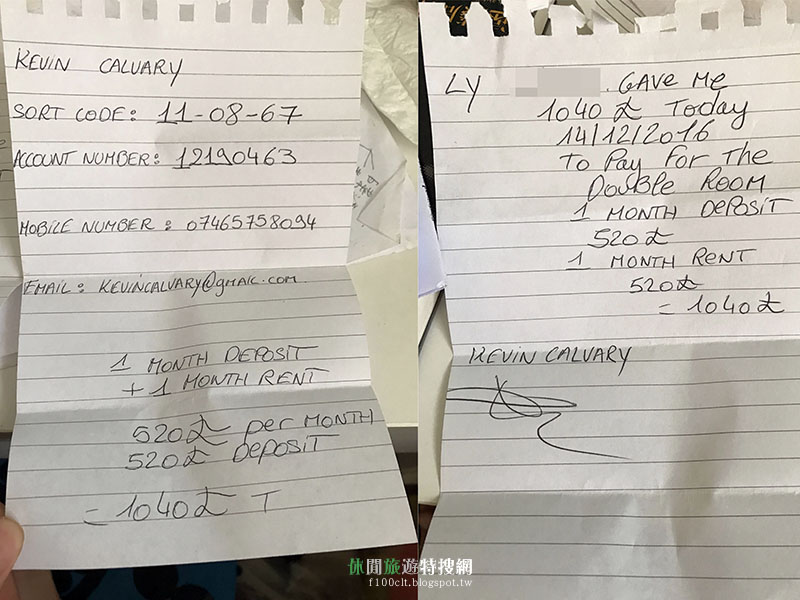 KEVIN CALVARY
SORT CODE: 11-08-67
ACCOUNT NUMBER: 12190463
MOBILE NUMBER: 07465758094
EMAIL: KEVINCALVARY@GMAIL.COM
1 MONTH DEPOSIT
+ 1 MONTH RENT
520£ per MONTH
520£ DEPOSIT
= 1040£ T
LY GAVE ME
1040£ Today
14/12/2016
To Pay For The
Double Room
1 MONTH DEPOSIT
520£
1 MONTH RENT
520£
= 1040£
KEVIN CALVARY
休閒旅遊特搜網
f100clt.blogspot.tw